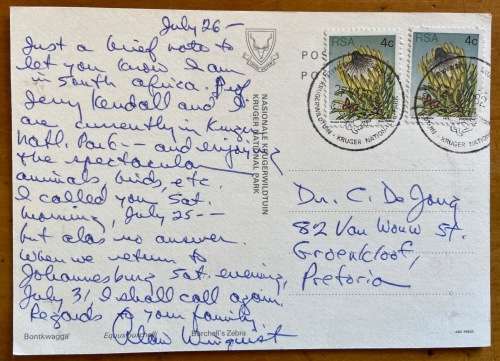 July 26—
Just a brief note to
let you know I am
in South Africa.
Jerry Kendall and I
are currently in Kruger
Natl. Park -- and enjoying
the spectacular
animals birds, etc.
I called you Sat.
morning, July 25--
but alas no answer.
When we return to
Johannesburg Sat. evening,
July 31, I shall call again.
Regards to your family,
Winquist
Bontkwagga
Equus burchelli
Burchell's Zebra
NASIONALE KRUGERWILDTUIN
KRUGER NATIONAL PARK
RSA 4c
RSA 4c
KRUGERWILDTUIN KRUGER NATIONAL
KRUGER NATIONAL
Dr. C. De Jong
82 Van Wouw St.
Groenkloof,
Pretoria